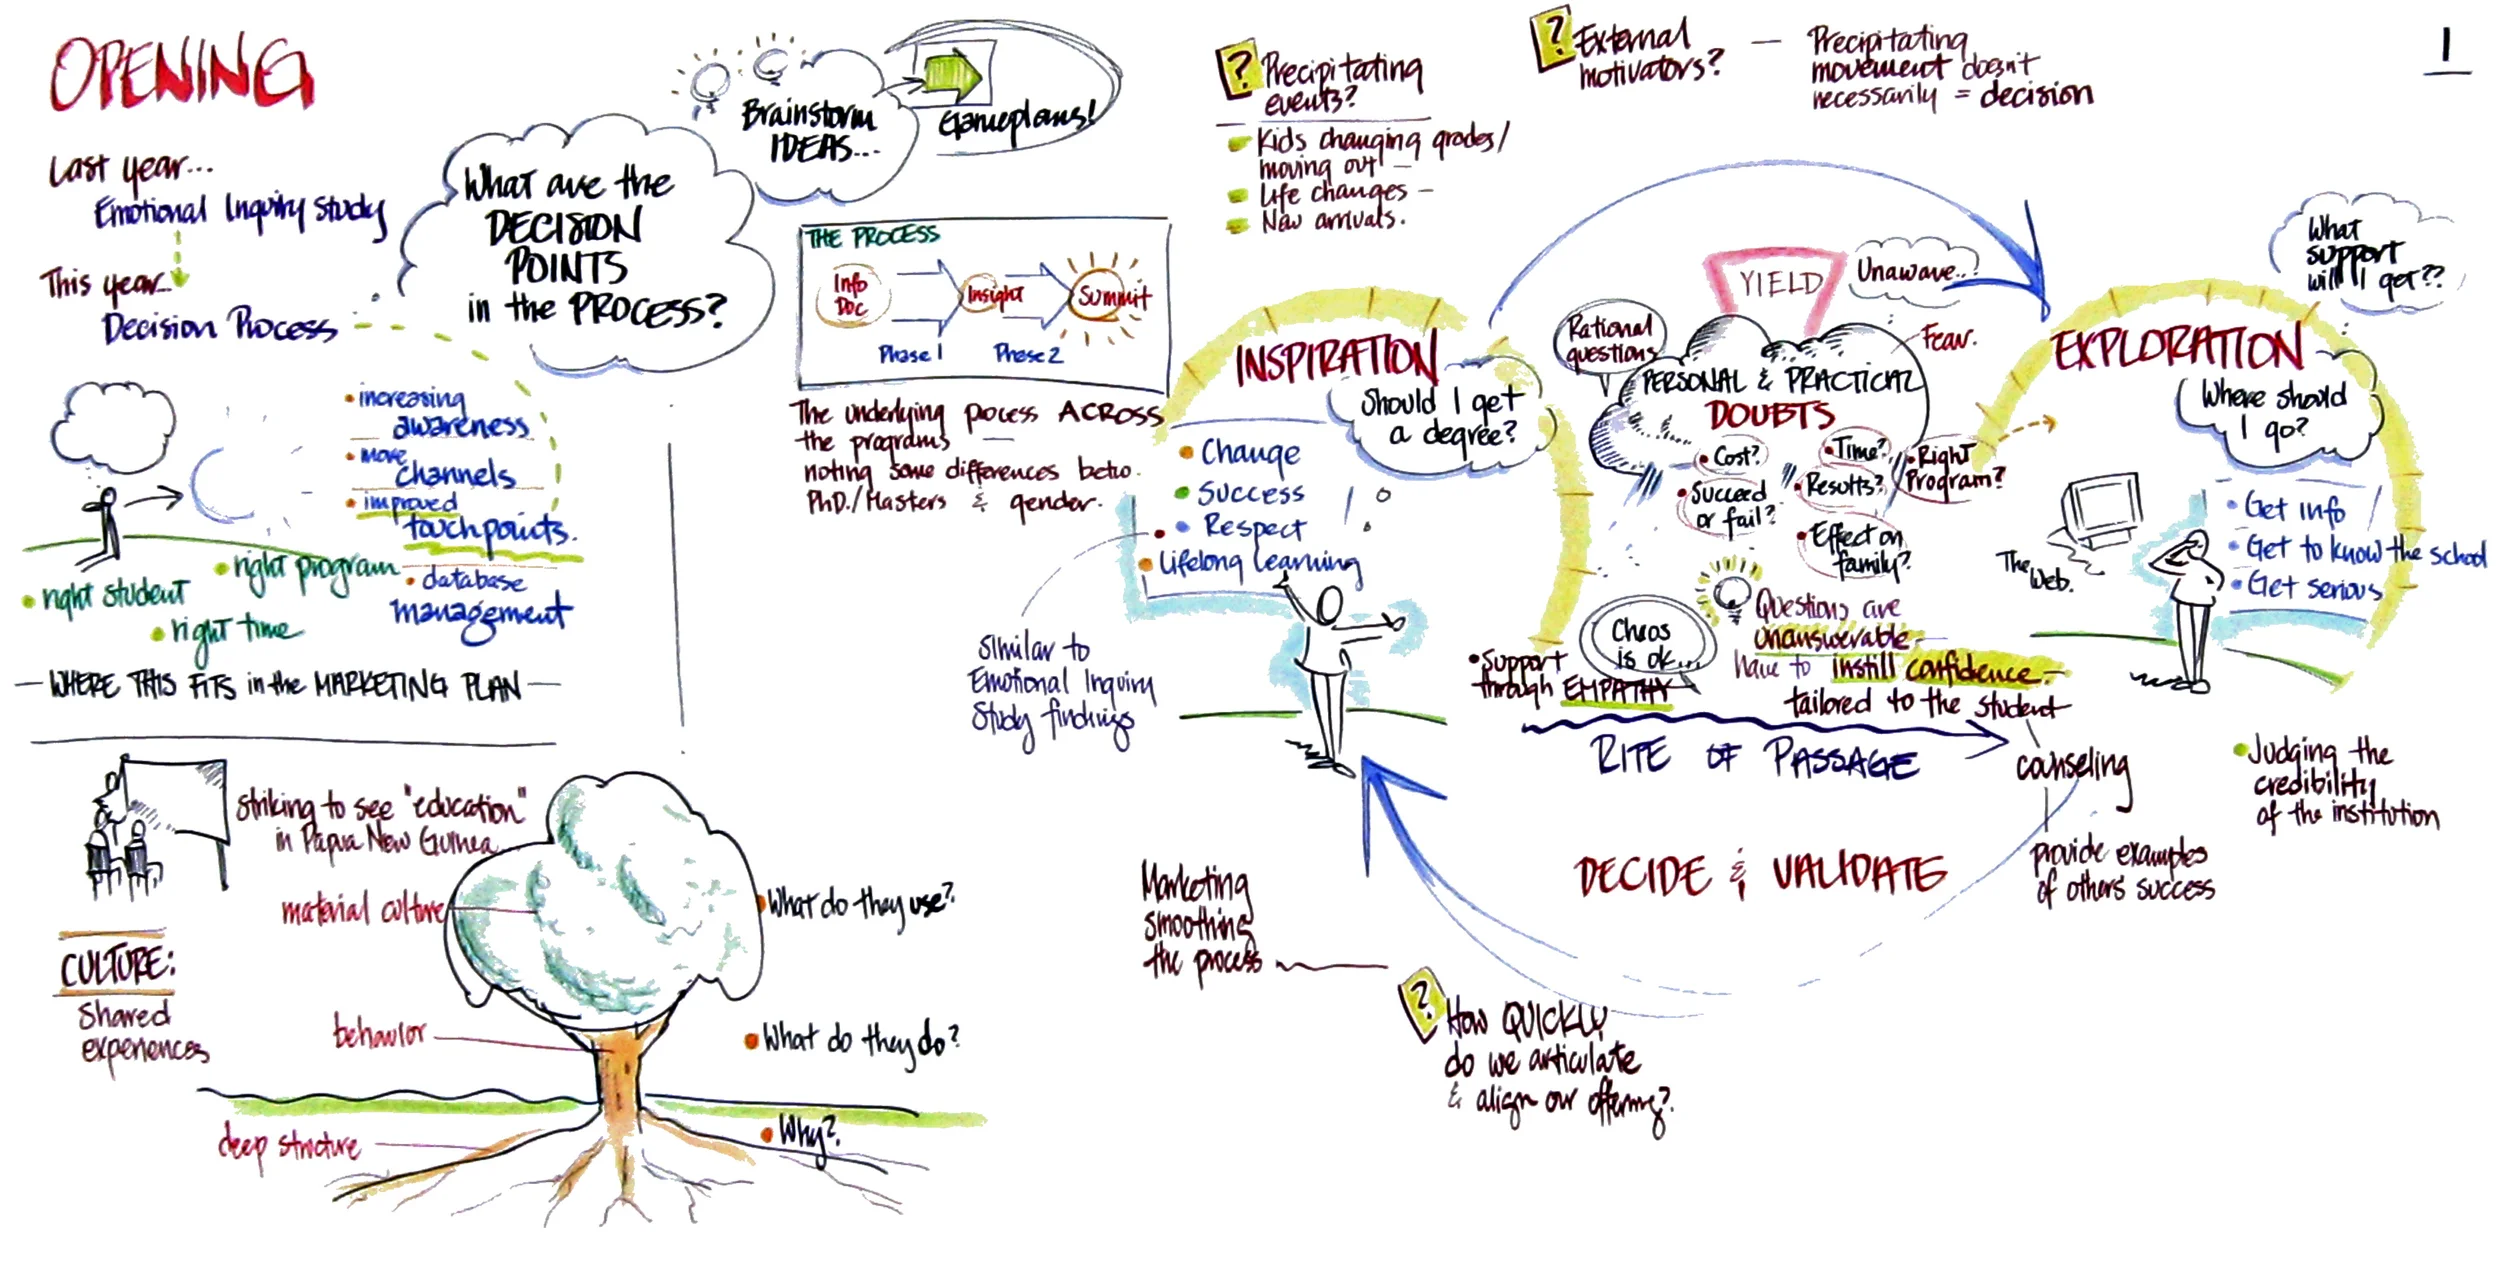 OPENING
Last year...
Emotional Inquiry Study
This year...
Decision Process
What are the
DECISION
POINTS
in the PROCESS?
Brainstorm
IDEAS...
Gameplans!
• increasing
awareness
• more
channels
• improved
touchpoints.
• database
management
• right student
• right program
• right time
— WHERE THIS FITS in the MARKETING PLAN —
striking to see "education"
in Papua New Guinea
CULTURE:
Shared
experiences
material culture
behavior
deep structure
• What do they use?
• What do they do?
• Why?
THE PROCESS
Info
Doc
Insight
Summit
Phase 1
Phase 2
The underlying process ACROSS
the programs —
noting some differences betw.
PhD./Masters & gender.
? Precipitating
events?
Kids changing grades/
moving out —
Life changes —
New arrivals.
? External
motivators?
— Precipitating
movement doesn't
necessarily = decision
1
INSPIRATION
Should I get
a degree?
• Change
• Success
• Respect
• Lifelong learning
Similar to
Emotional Inquiry
Study findings
YIELD
Unaware..?
Rational
questions
Fear.
PERSONAL & PRACTICAL
DOUBTS
• Cost?
• Time?
• Right
Program?
• Succeed
or fail?
• Results?
• Effect on
family?
Chaos
is ok...
• Support
through EMPATHY
Questions are
unanswerable —
have to instill confidence —
tailored to the student
RITE OF PASSAGE
counseling
provide examples
of others' success
DECIDE & VALIDATE
Marketing
smoothing
the process
? How QUICKLY
do we articulate
& align our offering?
EXPLORATION
What
support
will I get??
Where should
I go?
The
Web.
• Get info
• Get to know the school
• Get serious
• Judging the
credibility
of the institution